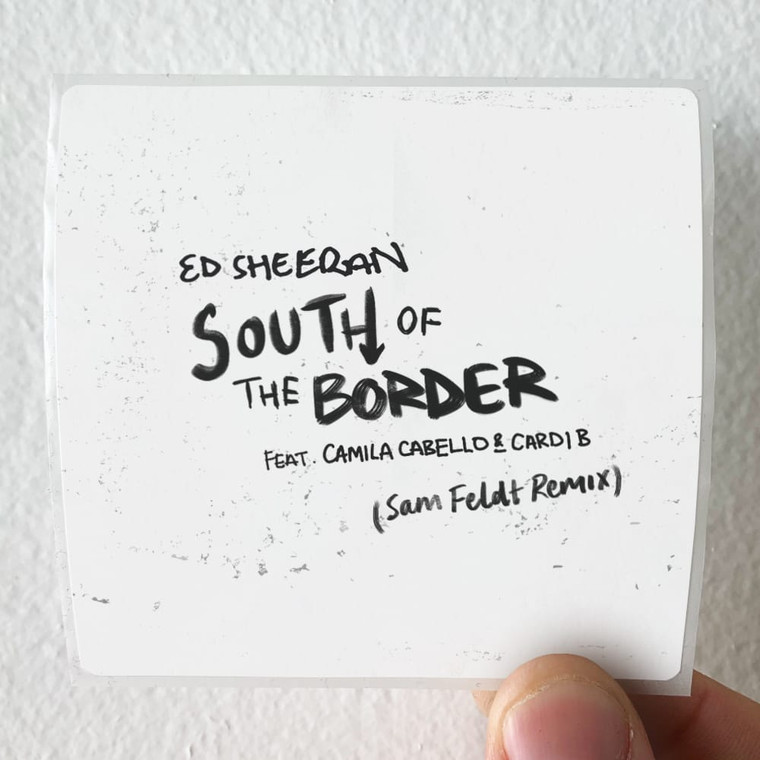 ED SHEERAN
SOUTH OF
THE BORDER
FEAT. CAMILA CABELLO & CARDI B
(Sam Feldt Remix)